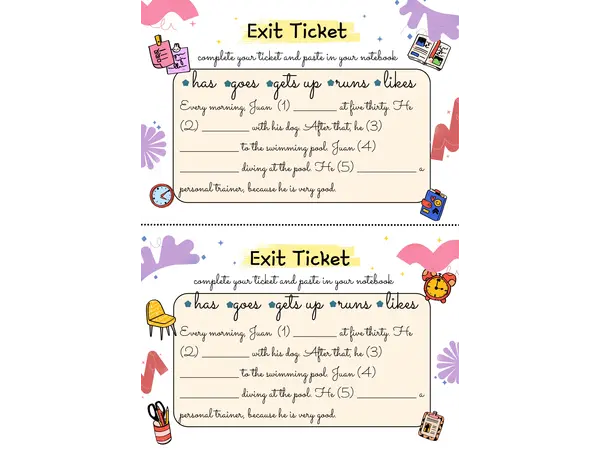 Exit Ticket
complete your ticket and paste in your notebook
has goes gets up runs likes
Every morning, Juan (1) ________ at five thirty. He
(2) ________ with his dog. After that, he (3)
__________ to the swimming pool. Juan (4)
__________ diving at the pool. He (5) __________ a
personal trainer, because he is very good.
Exit Ticket
complete your ticket and paste in your notebook
has goes gets up runs likes
Every morning, Juan (1) ________ at five thirty. He
(2) ________ with his dog. After that, he (3)
__________ to the swimming pool. Juan (4)
__________ diving at the pool. He (5) __________ a
personal trainer, because he is very good.